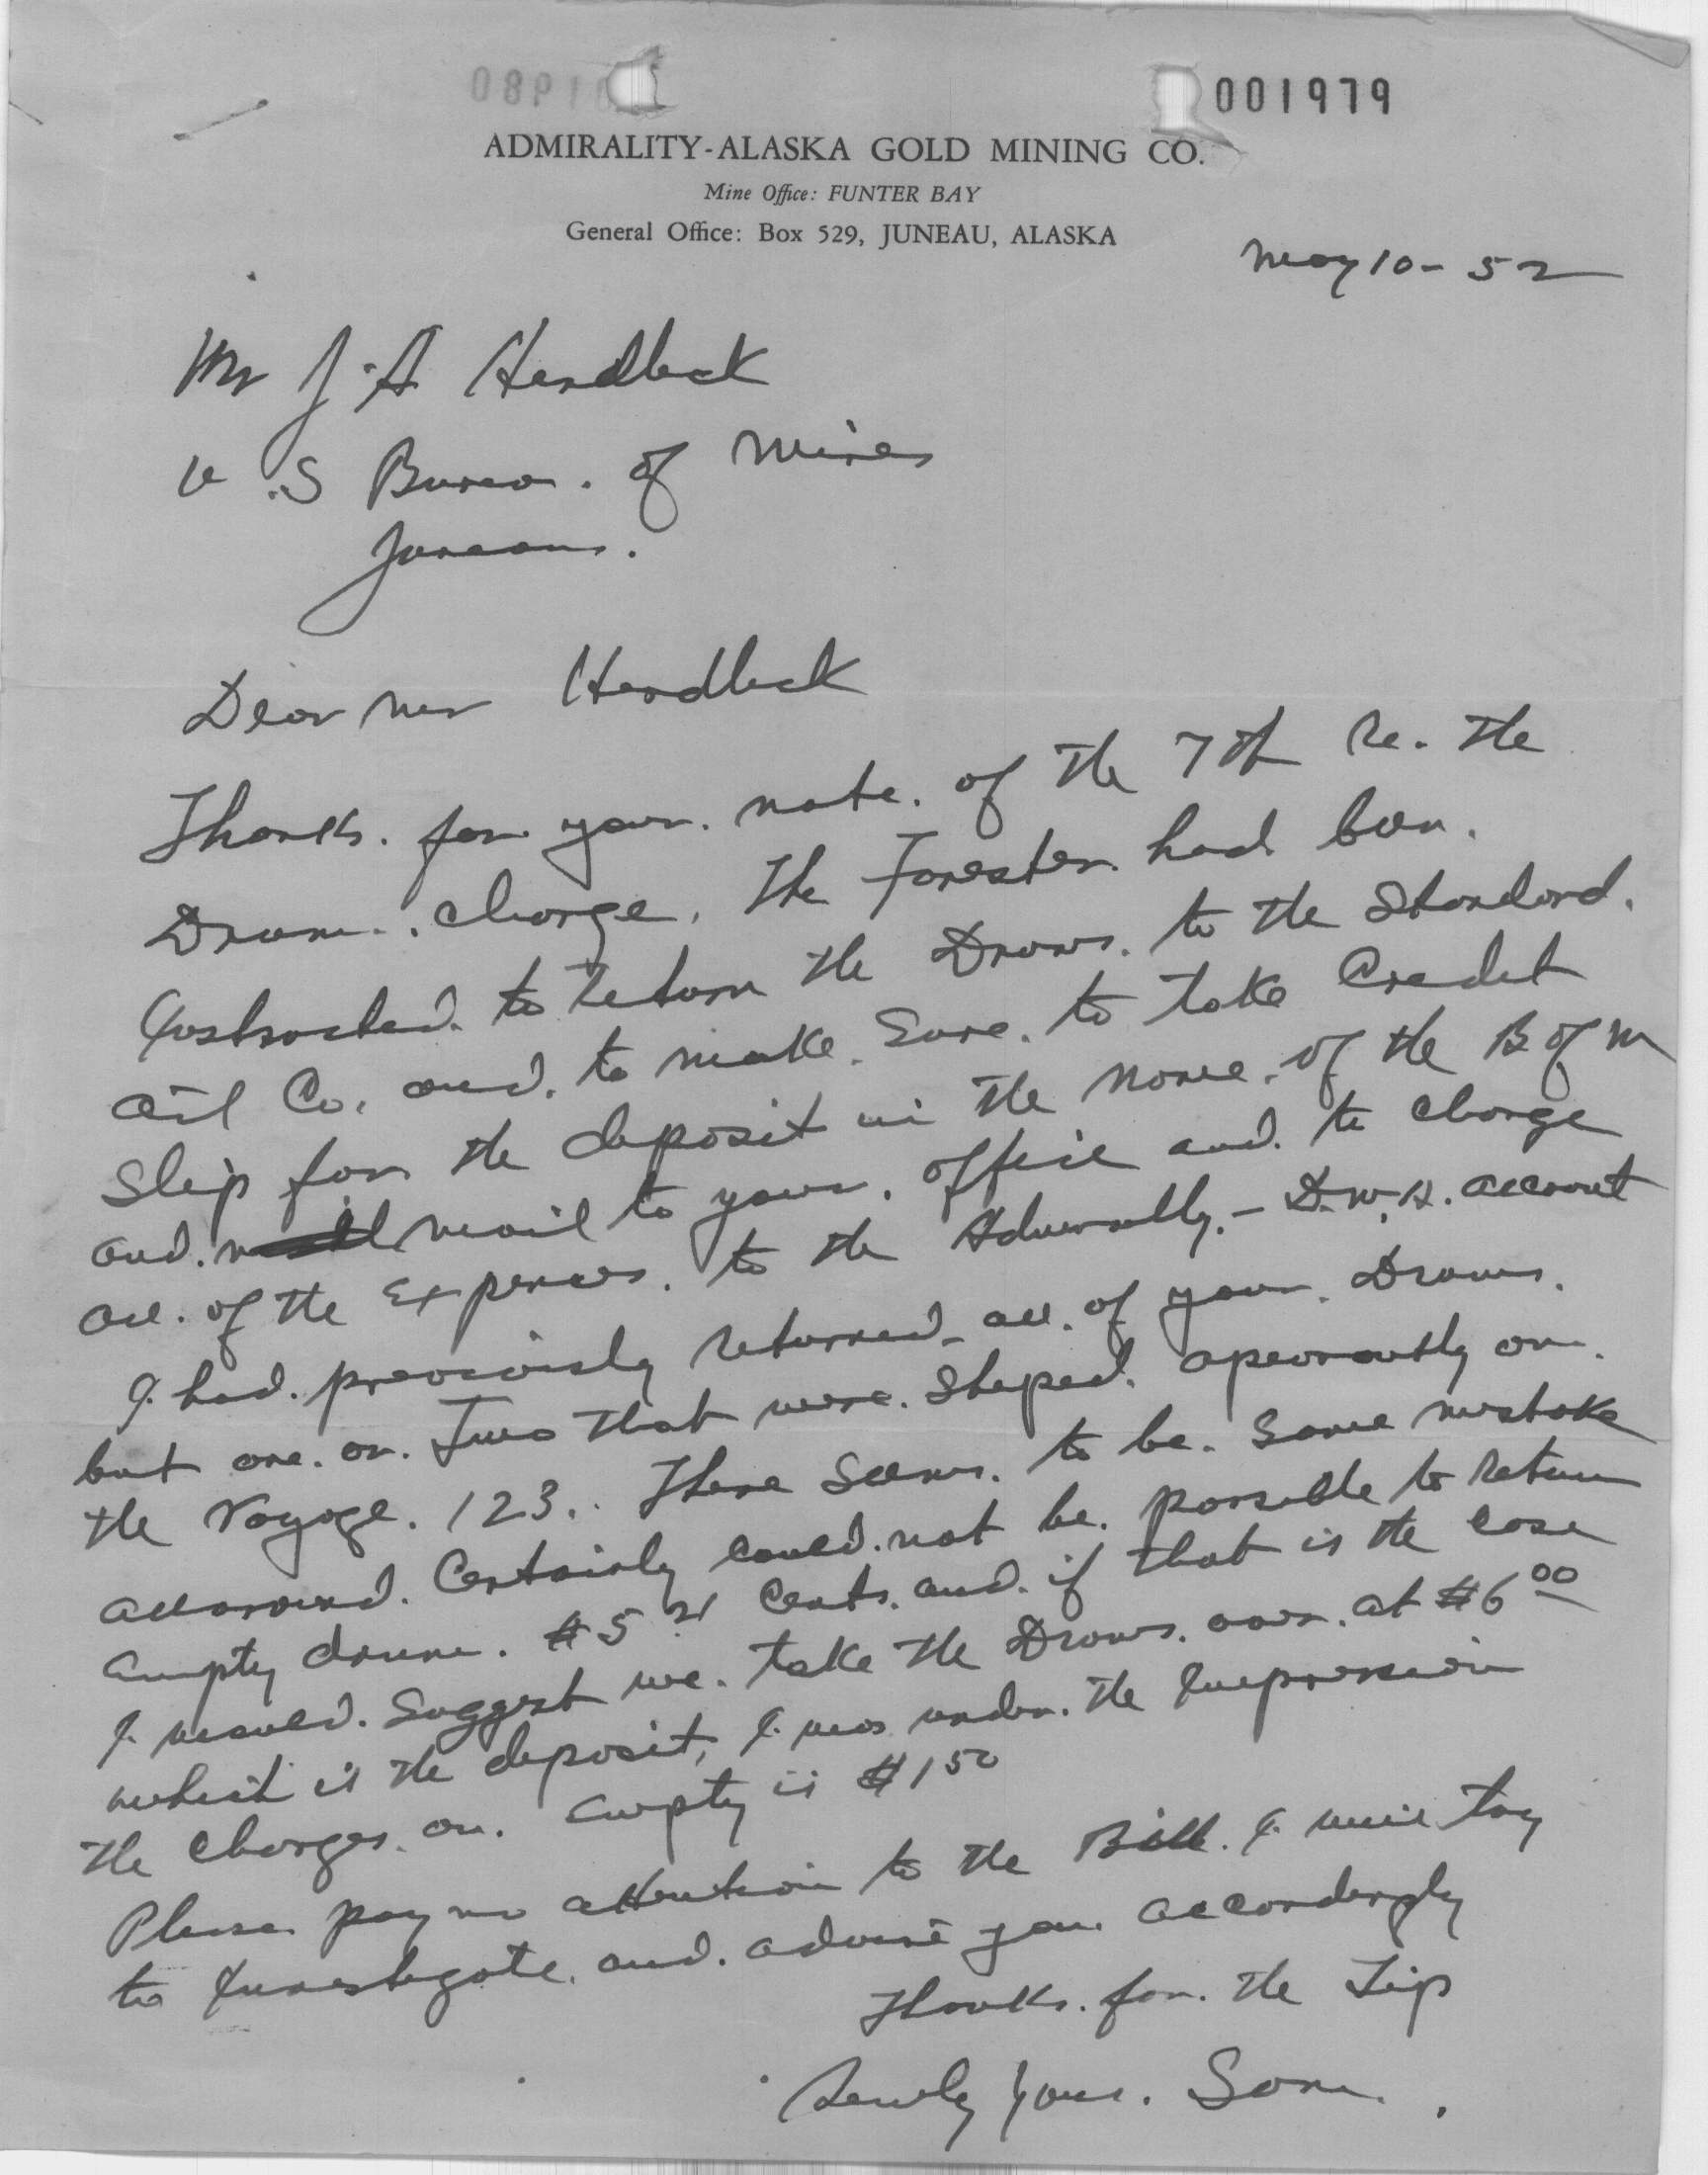 001979
ADMIRALITY-ALASKA GOLD MINING CO.
Mine Office: FUNTER BAY
General Office: Box 529, JUNEAU, ALASKA
May 10 - 52
Mr J. A Herdlick
U.S Bureau. of Mines
Juneau.
Dear Mr Herdlick
Thanks. for your. note. of the 7th Re. the
Drum.. charge. The Forester. had been.
Instructed. to Return the Drums. to the Standard.
Oil Co. and. to make. Sure. to take Credit
Slip for the deposit in the Name. of the B of M
and. mail to your. office and. to charge
all. of the Expences. to the Admiralty. - D.W.H. account
I. had. previously Returned all. of your. Drums.
but one. or. Two that were. Shiped. apearantly on.
the Voyage. 123.. There Seems. to be. Some mistake
allaround. Certainly could. not be. possible to Return
Empty drum. #5 21 Cents. and. if that is the case
I. would. Suggest we. take the Drums. over. at #6 00
which is the deposit, I. was under. the Impression
the Charges. on. Empty is $1 50
Please pay no attention to the Bill. I. will try
to Investigate. and. advise you accordingly
Thanks. for. the Tip
Truly Yours. Sam.